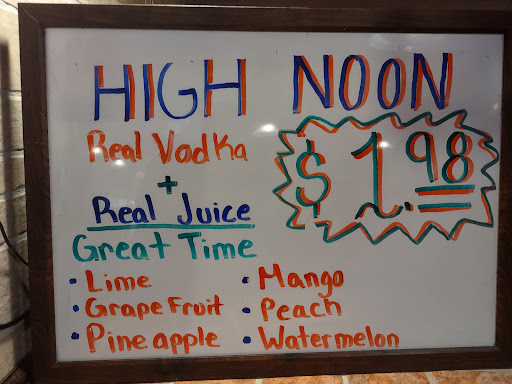 HIGH NOON
Real Vodka
+
Real Juice
$1.98
Great Time
• Lime
• Grape Fruit
• Pineapple
• Mango
• Peach
• Watermelon